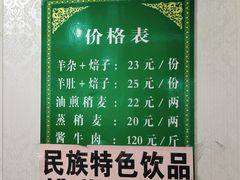 价格表
羊杂+焙子：23元/份
羊肚+焙子：25元/份
油煎稍麦：22元/两
蒸稍麦：20元/两
酱牛肉：120元/斤
民族特色饮品